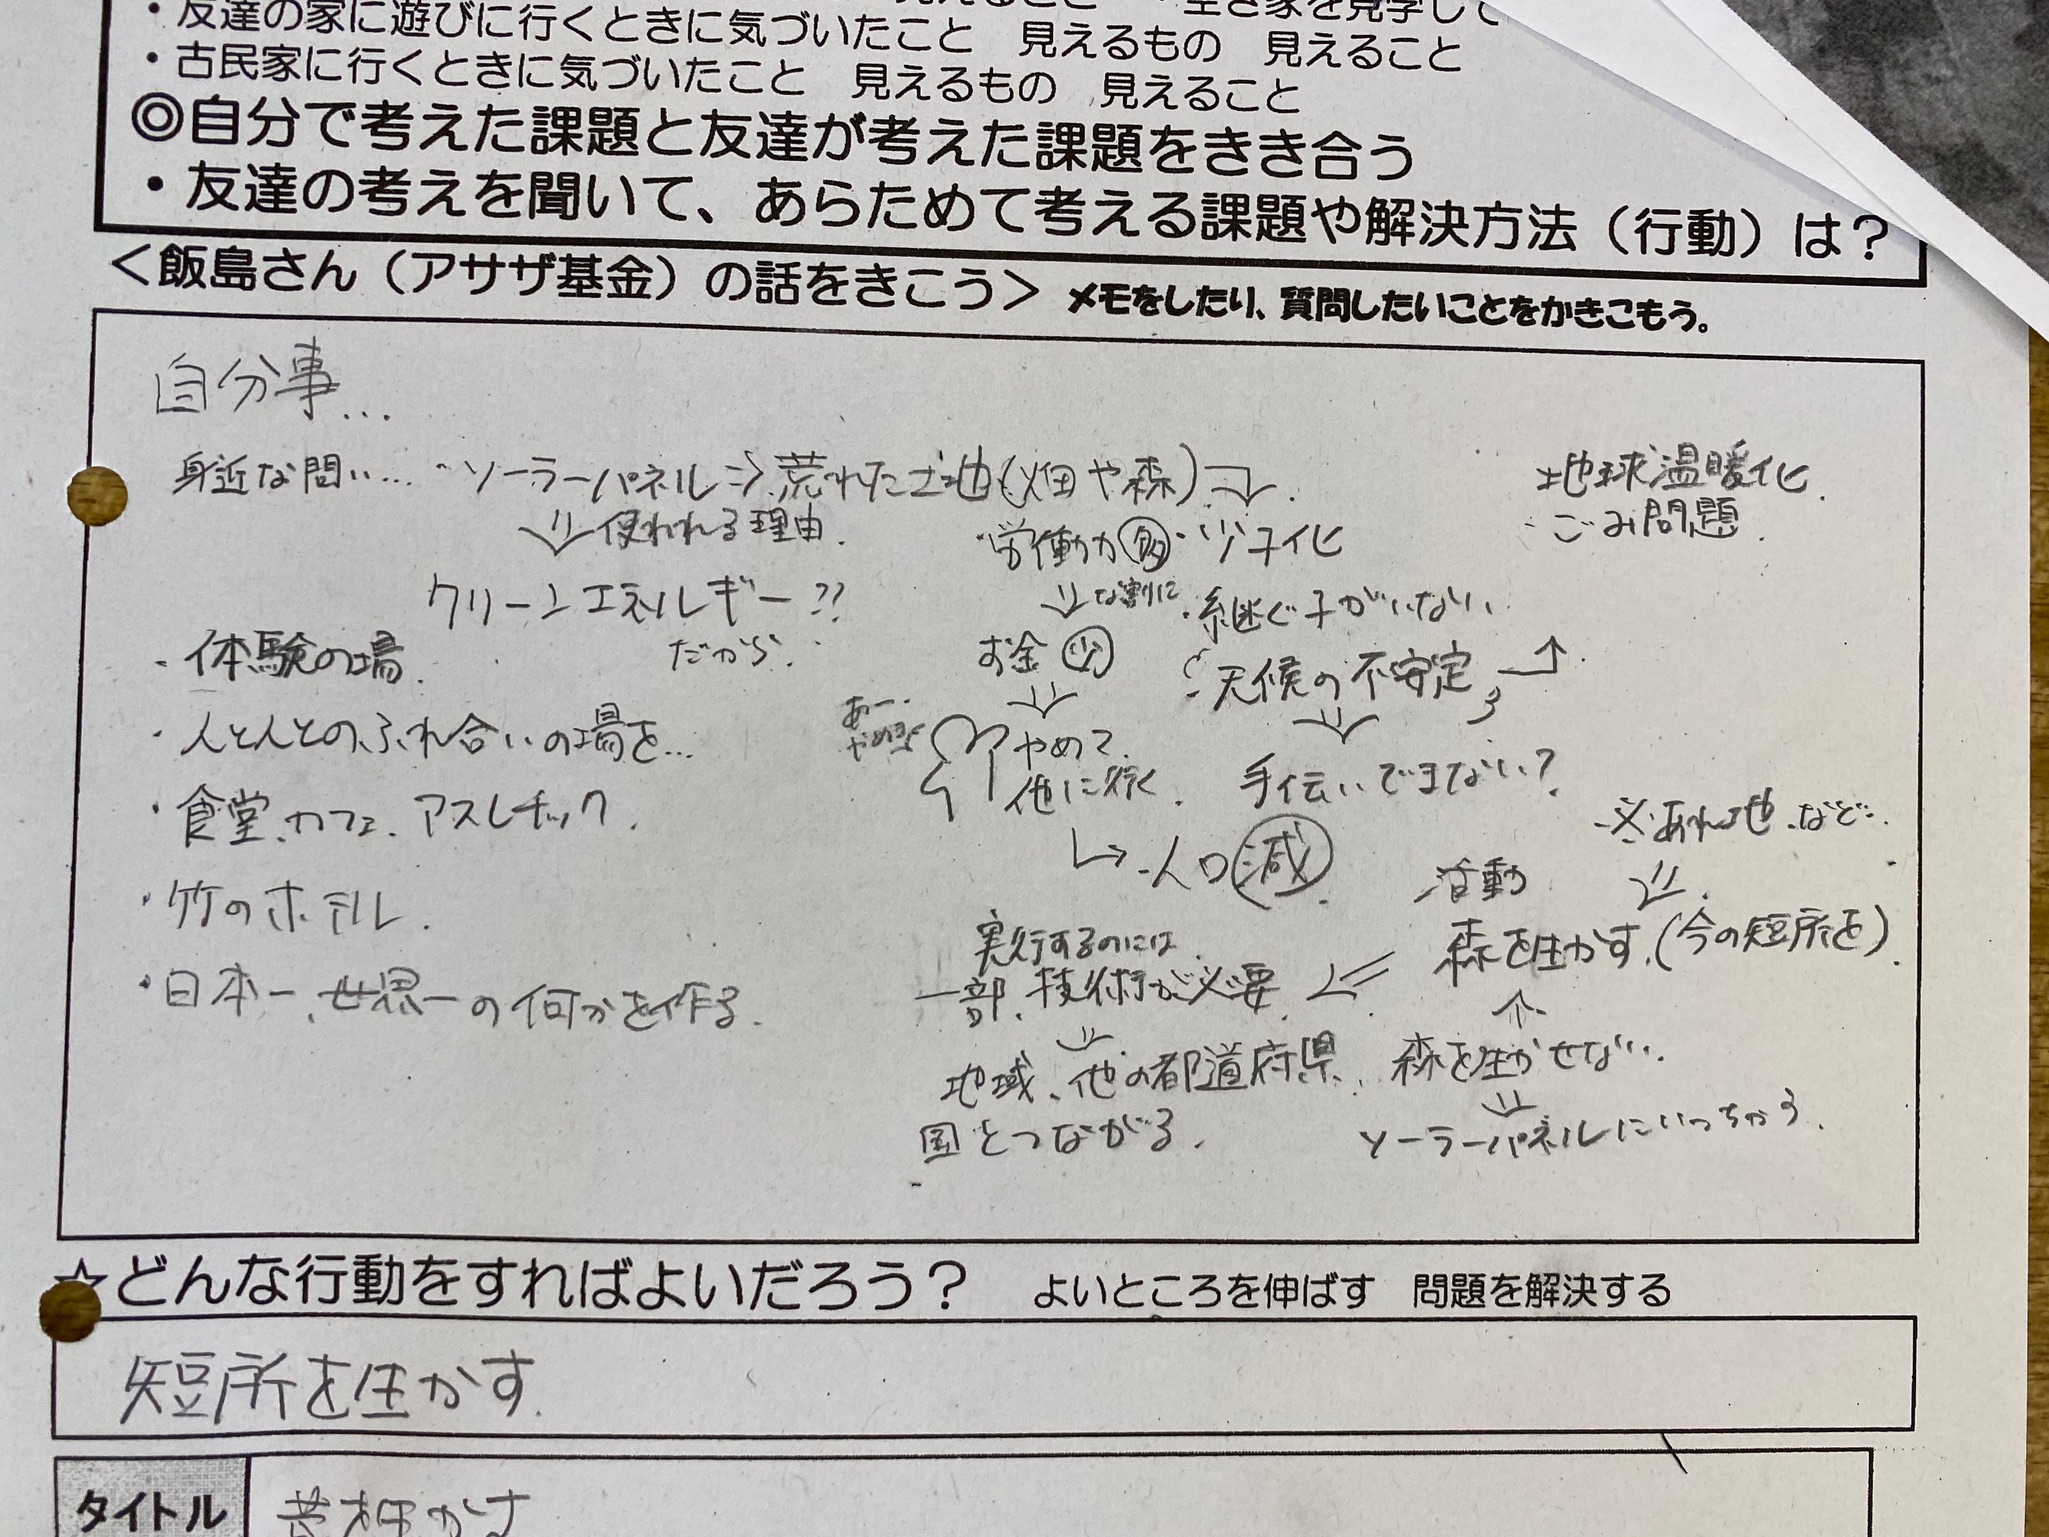 ・友達の家に遊びに行くときに気づいたこと　見えるもの　見えること
・古民家に行くときに気づいたこと　見えるもの　見えること
◎自分で考えた課題と友達が考えた課題をきき合う
・友達の考えを聞いて、あらためて考える課題や解決方法（行動）は？
＜飯島さん（アサザ基金）の話をきこう＞ メモをしたり、質問したいことをかきこもう。
自分事...
身近な問い... ・ソーラーパネル⇒荒れた土地(畑や森)
地球温暖化
・ごみ問題
⇓使われる理由
クリーンエネルギー??
だから
労働力多・少子化
⇓な割に ・継ぐ子がいない
お金少
天候の不安定
⇓
手伝いできない？
やめて
他に行く
↳人口減
・体験の場
・人と人とのふれ合いの場を...
・食堂、カフェ、アスレチック
・竹のホテル
・日本一、世界一の何かを作る
※あれ地 など
⇓
活動
森を生かす(今の短所を)
⇐
実行するのには
一部、技術が必要
⇓
地域、他の都道府県
国とつながる
↑
森を生かせない
⇓
ソーラーパネルにいっちゃう
☆どんな行動をすればよいだろう？　よいところを伸ばす　問題を解決する
短所を生かす
タイトル